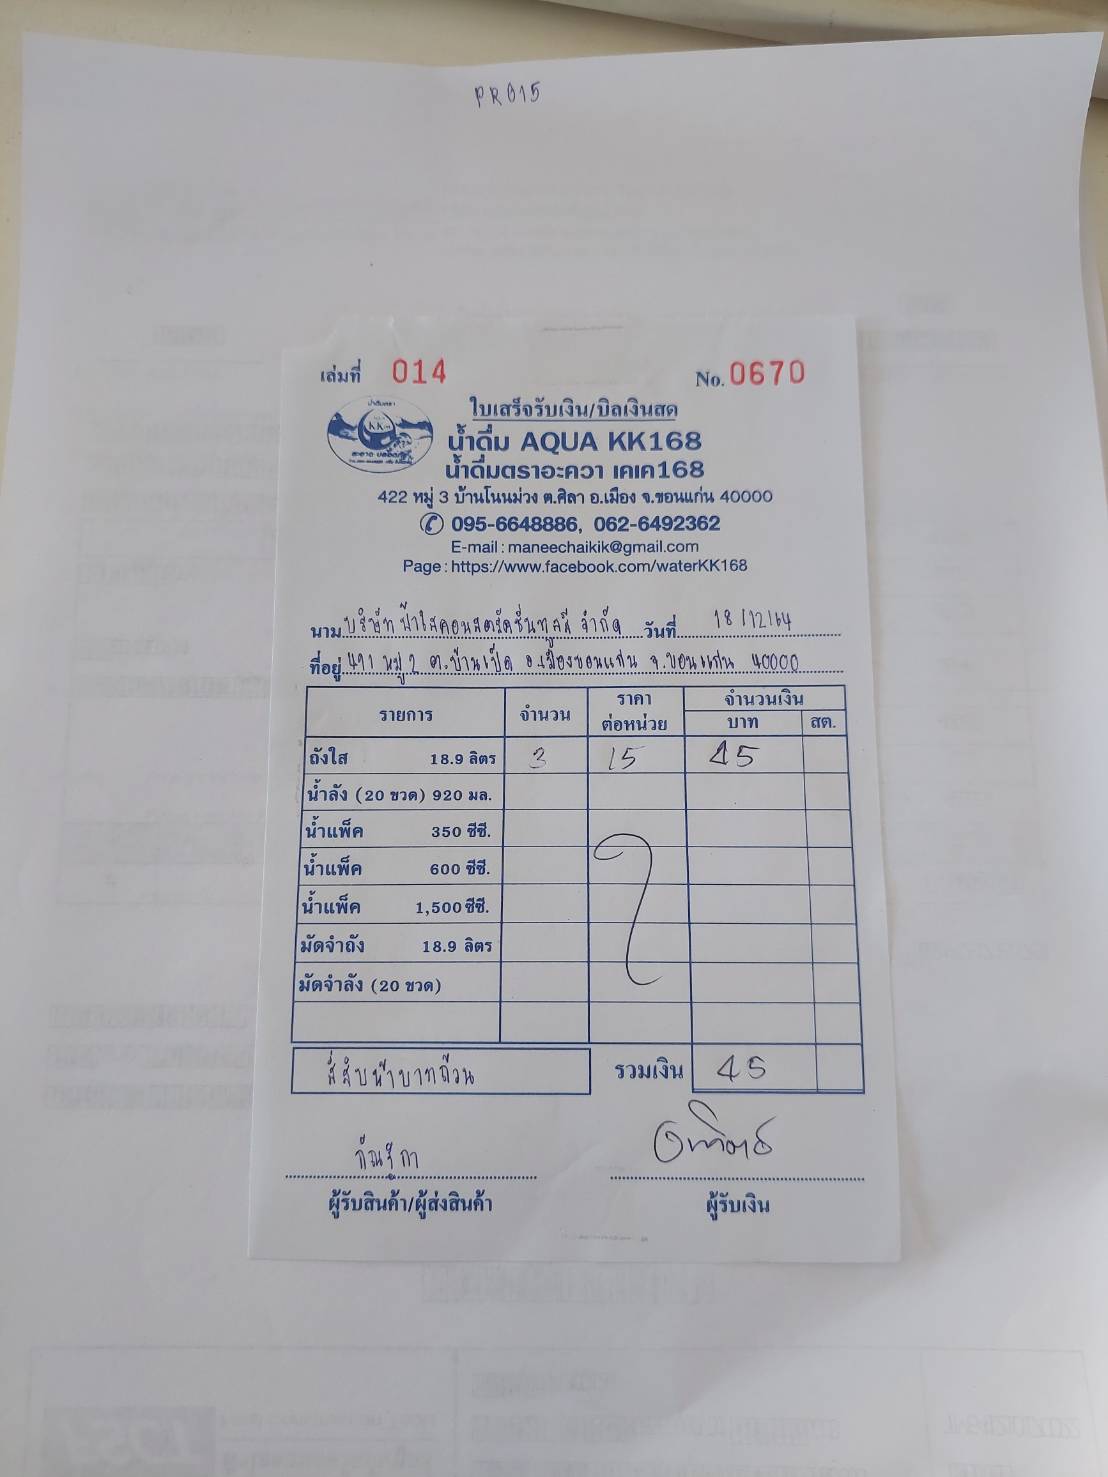 PR015
เล่มที่ 014 No. 0670
ใบเสร็จรับเงิน/บิลเงินสด
น้ำดื่ม AQUA KK168
น้ำดื่มตราอะควา เคเค168
422 หมู่ 3 บ้านโนนม่วง ต.ศิลา อ.เมือง จ.ขอนแก่น 40000
095-6648886, 062-6492362
E-mail : maneechaikik@gmail.com
Page : https://www.facebook.com/waterKK168
นาม บริษัท ฟ้าใสคอนสตรัคชั่นทูลส์ จำกัด วันที่ 18/12/64
ที่อยู่ 491 หมู่ 2 ต.บ้านเป็ด อ.เมืองขอนแก่น จ.ขอนแก่น 40000
รายการ จำนวน ราคาต่อหน่วย จำนวนเงิน
บาท สต.
ถังใส 18.9 ลิตร 3 15 45
น้ำลัง (20 ขวด) 920 มล.
น้ำแพ็ค 350 ซีซี.
น้ำแพ็ค 600 ซีซี.
น้ำแพ็ค 1,500 ซีซี.
มัดจำถัง 18.9 ลิตร
มัดจำลัง (20 ขวด)
สี่สิบห้าบาทถ้วน รวมเงิน 45
ผู้รับสินค้า/ผู้ส่งสินค้า ผู้รับเงิน